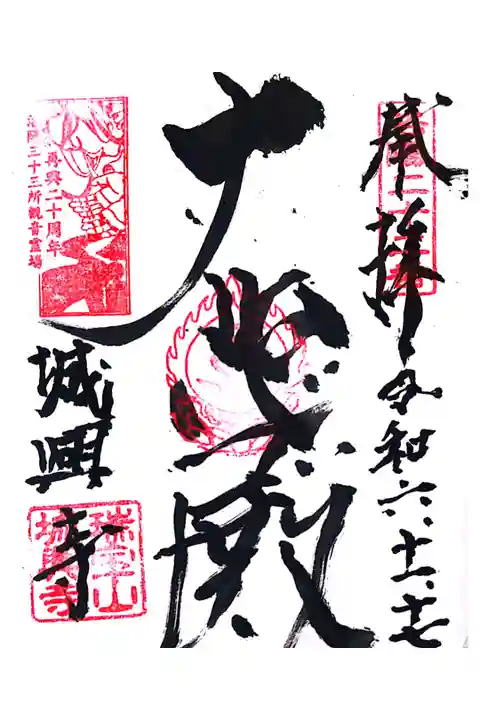 奉拝
令和六、十一、十七
大悲殿
城興寺
再興二十周年
三十三所観音霊場
瑞宝山
城興寺